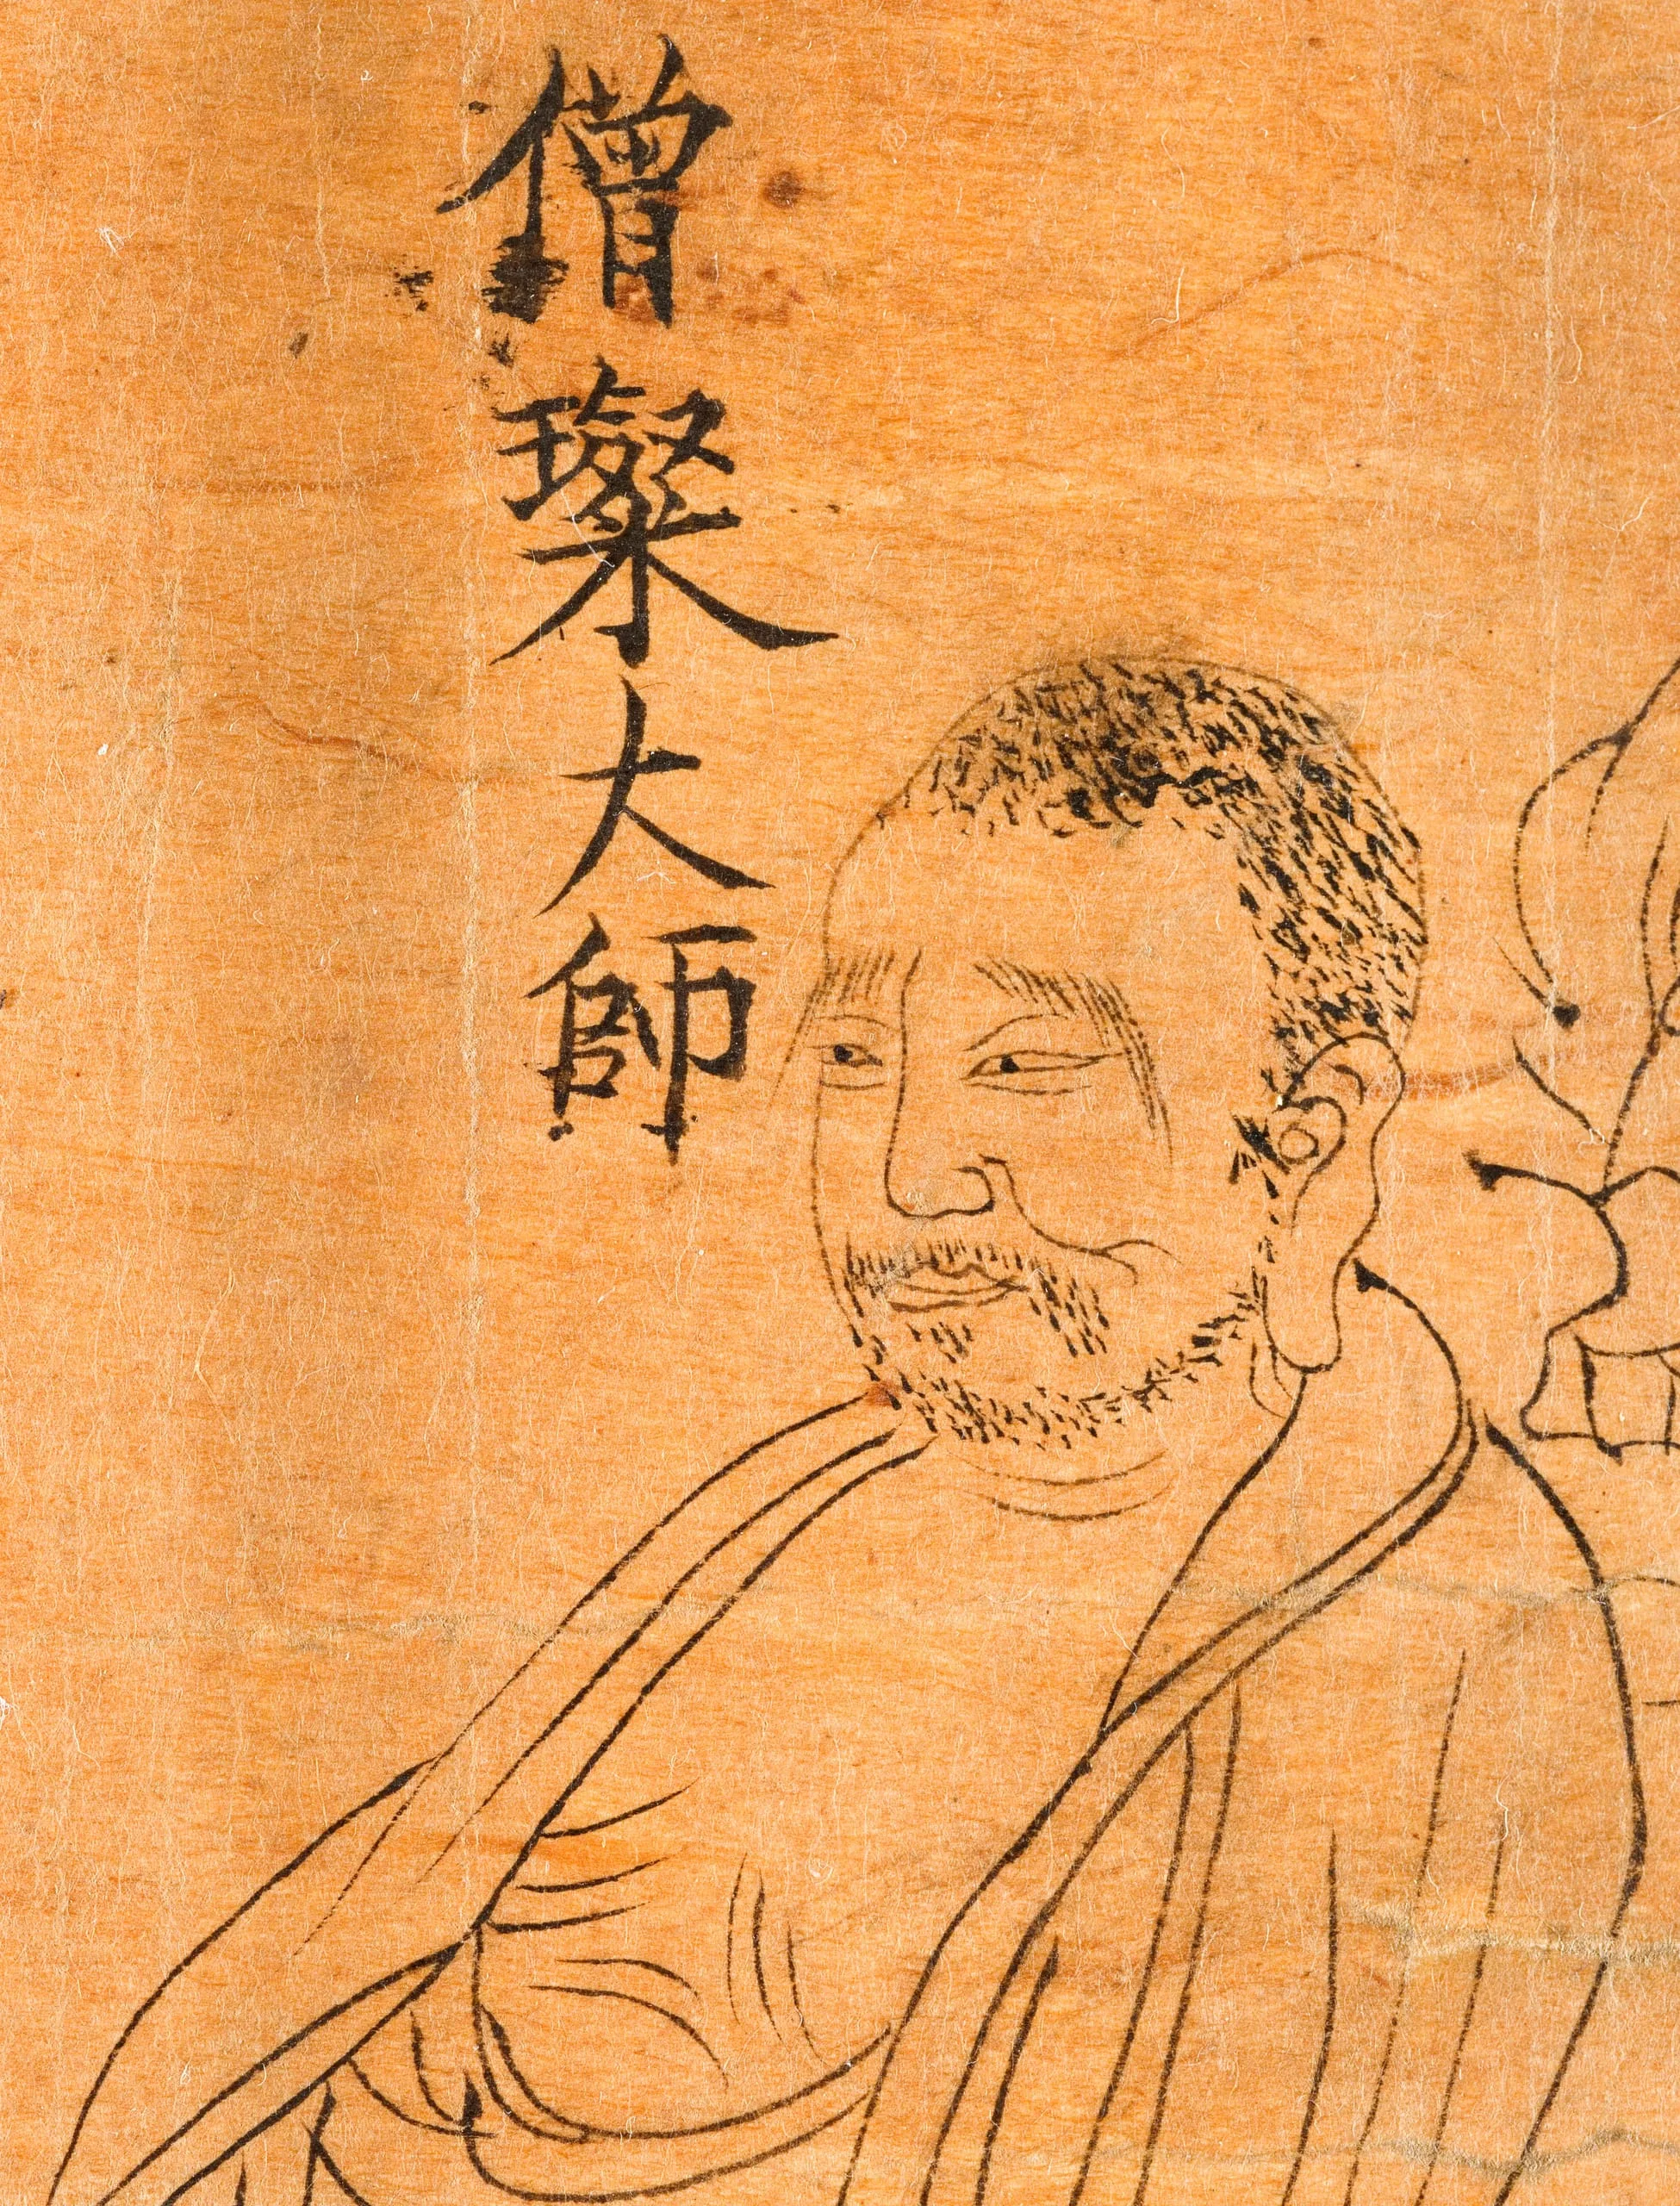 僧璨大師